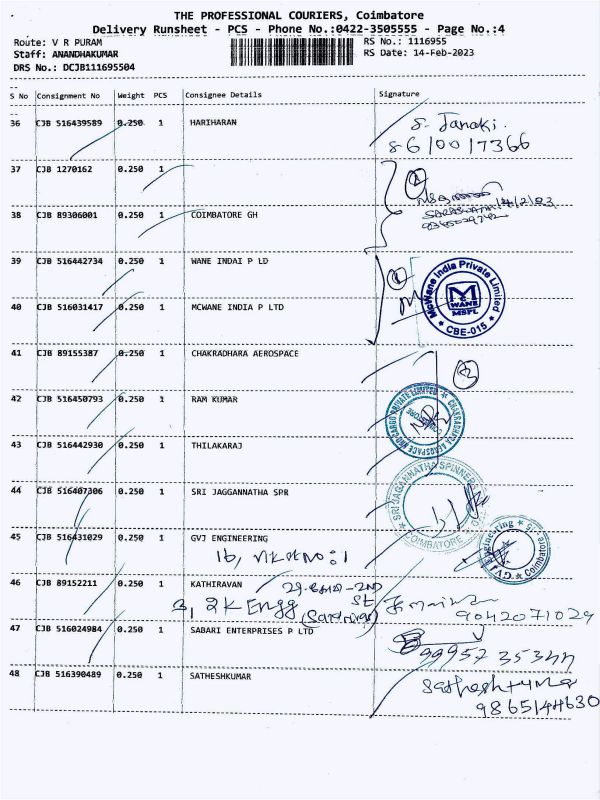 THE PROFESSIONAL COURIERS, Coimbatore
Delivery Runsheet - PCS - Phone No.:0422-3505555 - Page No.:4
Route: V R PURAM
RS No.: 1116955
Staff: ANANDHAKUMAR
RS Date: 14-Feb-2023
DRS No.: DCJB111695504
S No Consignment No Weight PCS Consignee Details Signature
36 CJB 516439589 0.250 1 HARIHARAN S. Janaki.
8610017366
37 CJB 1270162 0.250 1
38 CJB 89306001 0.250 1 COIMBATORE GH
39 CJB 516442734 0.250 1 WANE INDAI P LD
40 CJB 516031417 0.250 1 MCWANE INDIA P LTD
McWane India Private Limited
M C WANE
MSPL
* CBE-015 *
41 CJB 89155387 0.250 1 CHAKRADHARA AEROSPACE
42 CJB 516450793 0.250 1 RAM KUMAR
CHAKRADHARA AEROSPACE AND CARGO PRIVATE LIMITED
43 CJB 516442930 0.250 1 THILAKARAJ
44 CJB 516407306 0.250 1 SRI JAGGANNATHA SPR
SRI JAGANNATHA SPINNERS
COIMBATORE
45 CJB 516431029 0.250 1 GVJ ENGINEERING
G.V.J. Engineering * Coimbatore
46 CJB 89152211 0.250 1 KATHIRAVAN
3, 2K Engg St
9042071029
47 CJB 516024984 0.250 1 SABARI ENTERPRISES P LTD
48 CJB 516390489 0.250 1 SATHESHKUMAR Satheshkumar
9865144630